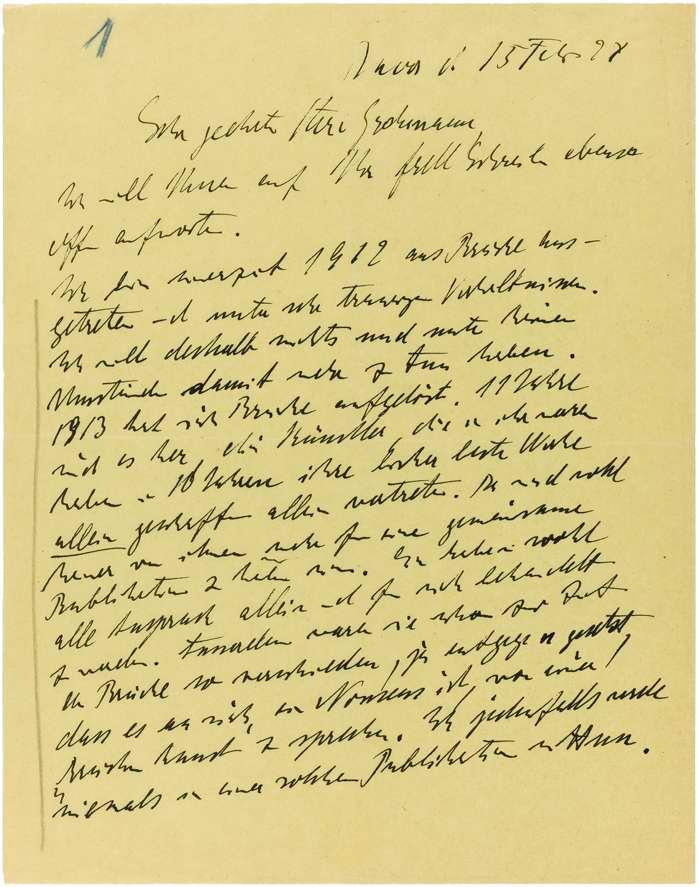 1
Davos d 15 Febr 28
Sehr geehrter Herr Grohmann,
Ich will Ihnen auf Ihr frdl Schreiben ebenso
offen antworten.
Ich bin seinerzeit 1912 aus Brücke aus-
getreten und unter sehr traurigen Verhältnissen.
Ich will deshalb nichts und unter keinen
Umständen damit mehr z tun haben.
1913 hat sich Brücke aufgelöst. 11 Jahre
sind es her, die Künstler die in ihr waren
haben in 10 Jahren ihre beste Werke
allein geschaffen allein vertreten. Da wird wohl
keiner von ihnen mehr für eine gemeinsame
Publikation z haben sein. Sie haben wohl
alle Anspruch allein und für sich behandelt
z werden. Ausserdem waren sie schon zur Zeit
der Brücke so verschieden, ja entgegen gesetzt,
dass es an sich ein Nonsens ist, von einer
Brücke Kunst z sprechen. Ich jedenfalls werde
niemals in einer solchen Publikation